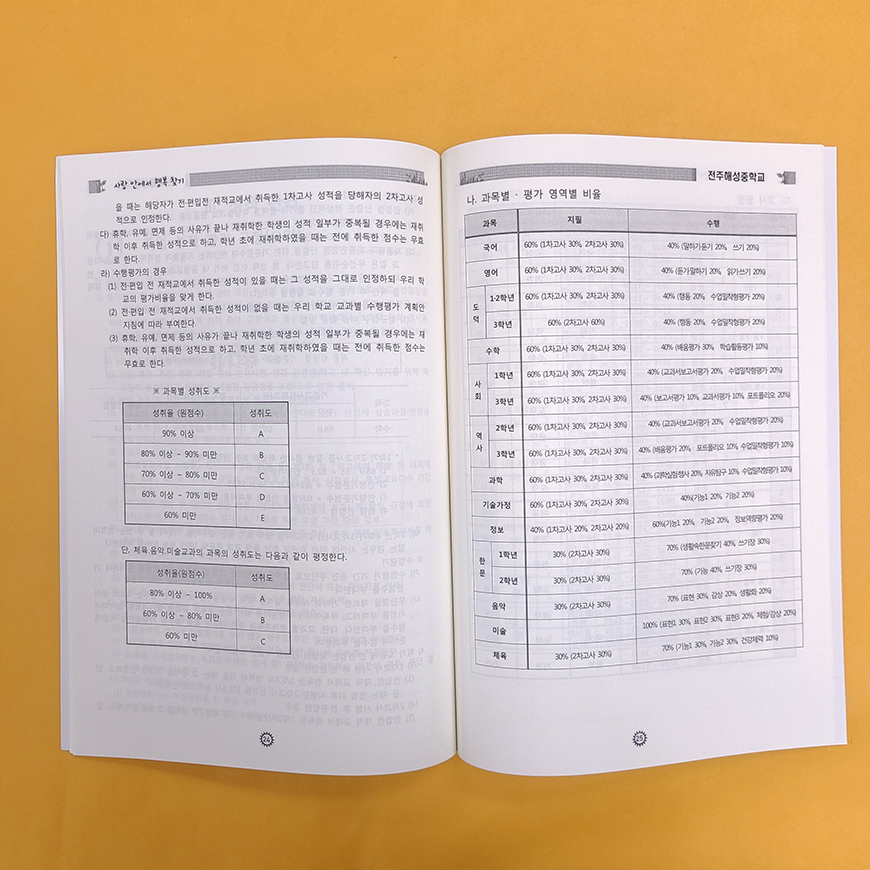 사랑 안에서 행복 찾기
을 때는 해당자가 전·편입전 재적교에서 취득한 1차고사 성적을 당해자의 2차고사 성
적으로 인정한다.
다) 휴학, 유예, 면제 등의 사유가 끝나 재취학한 학생의 성적 일부가 중복될 경우에는 재취
학 이후 취득한 성적으로 하고, 학년 초에 재취학하였을 때는 전에 취득한 점수는 무효
로 한다.
라) 수행평가의 경우
(1) 전·편입 전 재적교에서 취득한 성적이 있을 때는 그 성적을 그대로 인정하되 우리 학
교의 평가비율을 맞게 한다.
(2) 전·편입 전 재적교에서 취득한 성적이 없을 때는 우리 학교 교과별 수행평가 계획안
지침에 따라 부여한다.
(3) 휴학, 유예, 면제 등의 사유가 끝나 재취학한 학생의 성적 일부가 중복될 경우에는 재
취학 이후 취득한 성적으로 하고, 학년 초에 재취학하였을 때는 전에 취득한 점수는
무효로 한다.
※ 과목별 성취도 ※
성취율 (원점수) 성취도
90% 이상 A
80% 이상 ~ 90% 미만 B
70% 이상 ~ 80% 미만 C
60% 이상 ~ 70% 미만 D
60% 미만 E
단, 체육,음악,미술교과의 과목의 성취도는 다음과 같이 평정한다.
성취율(원점수) 성취도
80% 이상 ~ 100% A
60% 이상 ~ 80% 미만 B
60% 미만 C
24
전주해성중학교
나. 과목별 · 평가 영역별 비율
과목 지필 수행
국어 60% (1차고사 30%, 2차고사 30%) 40% (말하기·듣기 20%, 쓰기 20%)
영어 60% (1차고사 30%, 2차고사 30%) 40% (듣기·말하기 20%, 읽기·쓰기 20%)
도덕 1·2학년 60% (1차고사 30%, 2차고사 30%) 40% (행동 20%, 수업밀착형평가 20%)
3학년 60% (2차고사 60%) 40% (행동 20%, 수업밀착형평가 20%)
수학 60% (1차고사 30%, 2차고사 30%) 40% (배움평가 30%, 학습활동평가 10%)
사회 1학년 60% (1차고사 30%, 2차고사 30%) 40% (교과서보고서평가 20%, 수업밀착형평가 20%)
3학년 60% (1차고사 30%, 2차고사 30%) 40% (보고서평가 10%, 교과서평가 10%, 포트폴리오 20%)
역사 2학년 60% (1차고사 30%, 2차고사 30%) 40% (교과서보고서평가 20%, 수업밀착형평가 20%)
3학년 60% (1차고사 30%, 2차고사 30%) 40% (배움평가 20%, 포트폴리오 10%, 수업밀착형평가 10%)
과학 60% (1차고사 30%, 2차고사 30%) 40% (과학실험행사 20%, 자유탐구 10%, 수업밀착형평가 10%)
기술가정 60% (1차고사 30%, 2차고사 30%) 40%(기능1 20%, 기능2 20%)
정보 40% (1차고사 20%, 2차고사 20%) 60%(기능1 20%, 기능2 20%, 정보역량평가 20%)
한문 1학년 30% (2차고사 30%) 70% (생활속한문찾기 40%, 쓰기장 30%)
2학년 30% (2차고사 30%) 70% (기능 40%, 쓰기장 30%)
음악 30% (2차고사 30%) 70% (표현 30%, 감상 20%, 생활화 20%)
미술 100% (표현1 30%, 표현2 30%, 표현3 20%, 체험/감상 20%)
체육 30% (2차고사 30%) 70% (기능1 30%, 기능2 30%, 건강체력 10%)
25